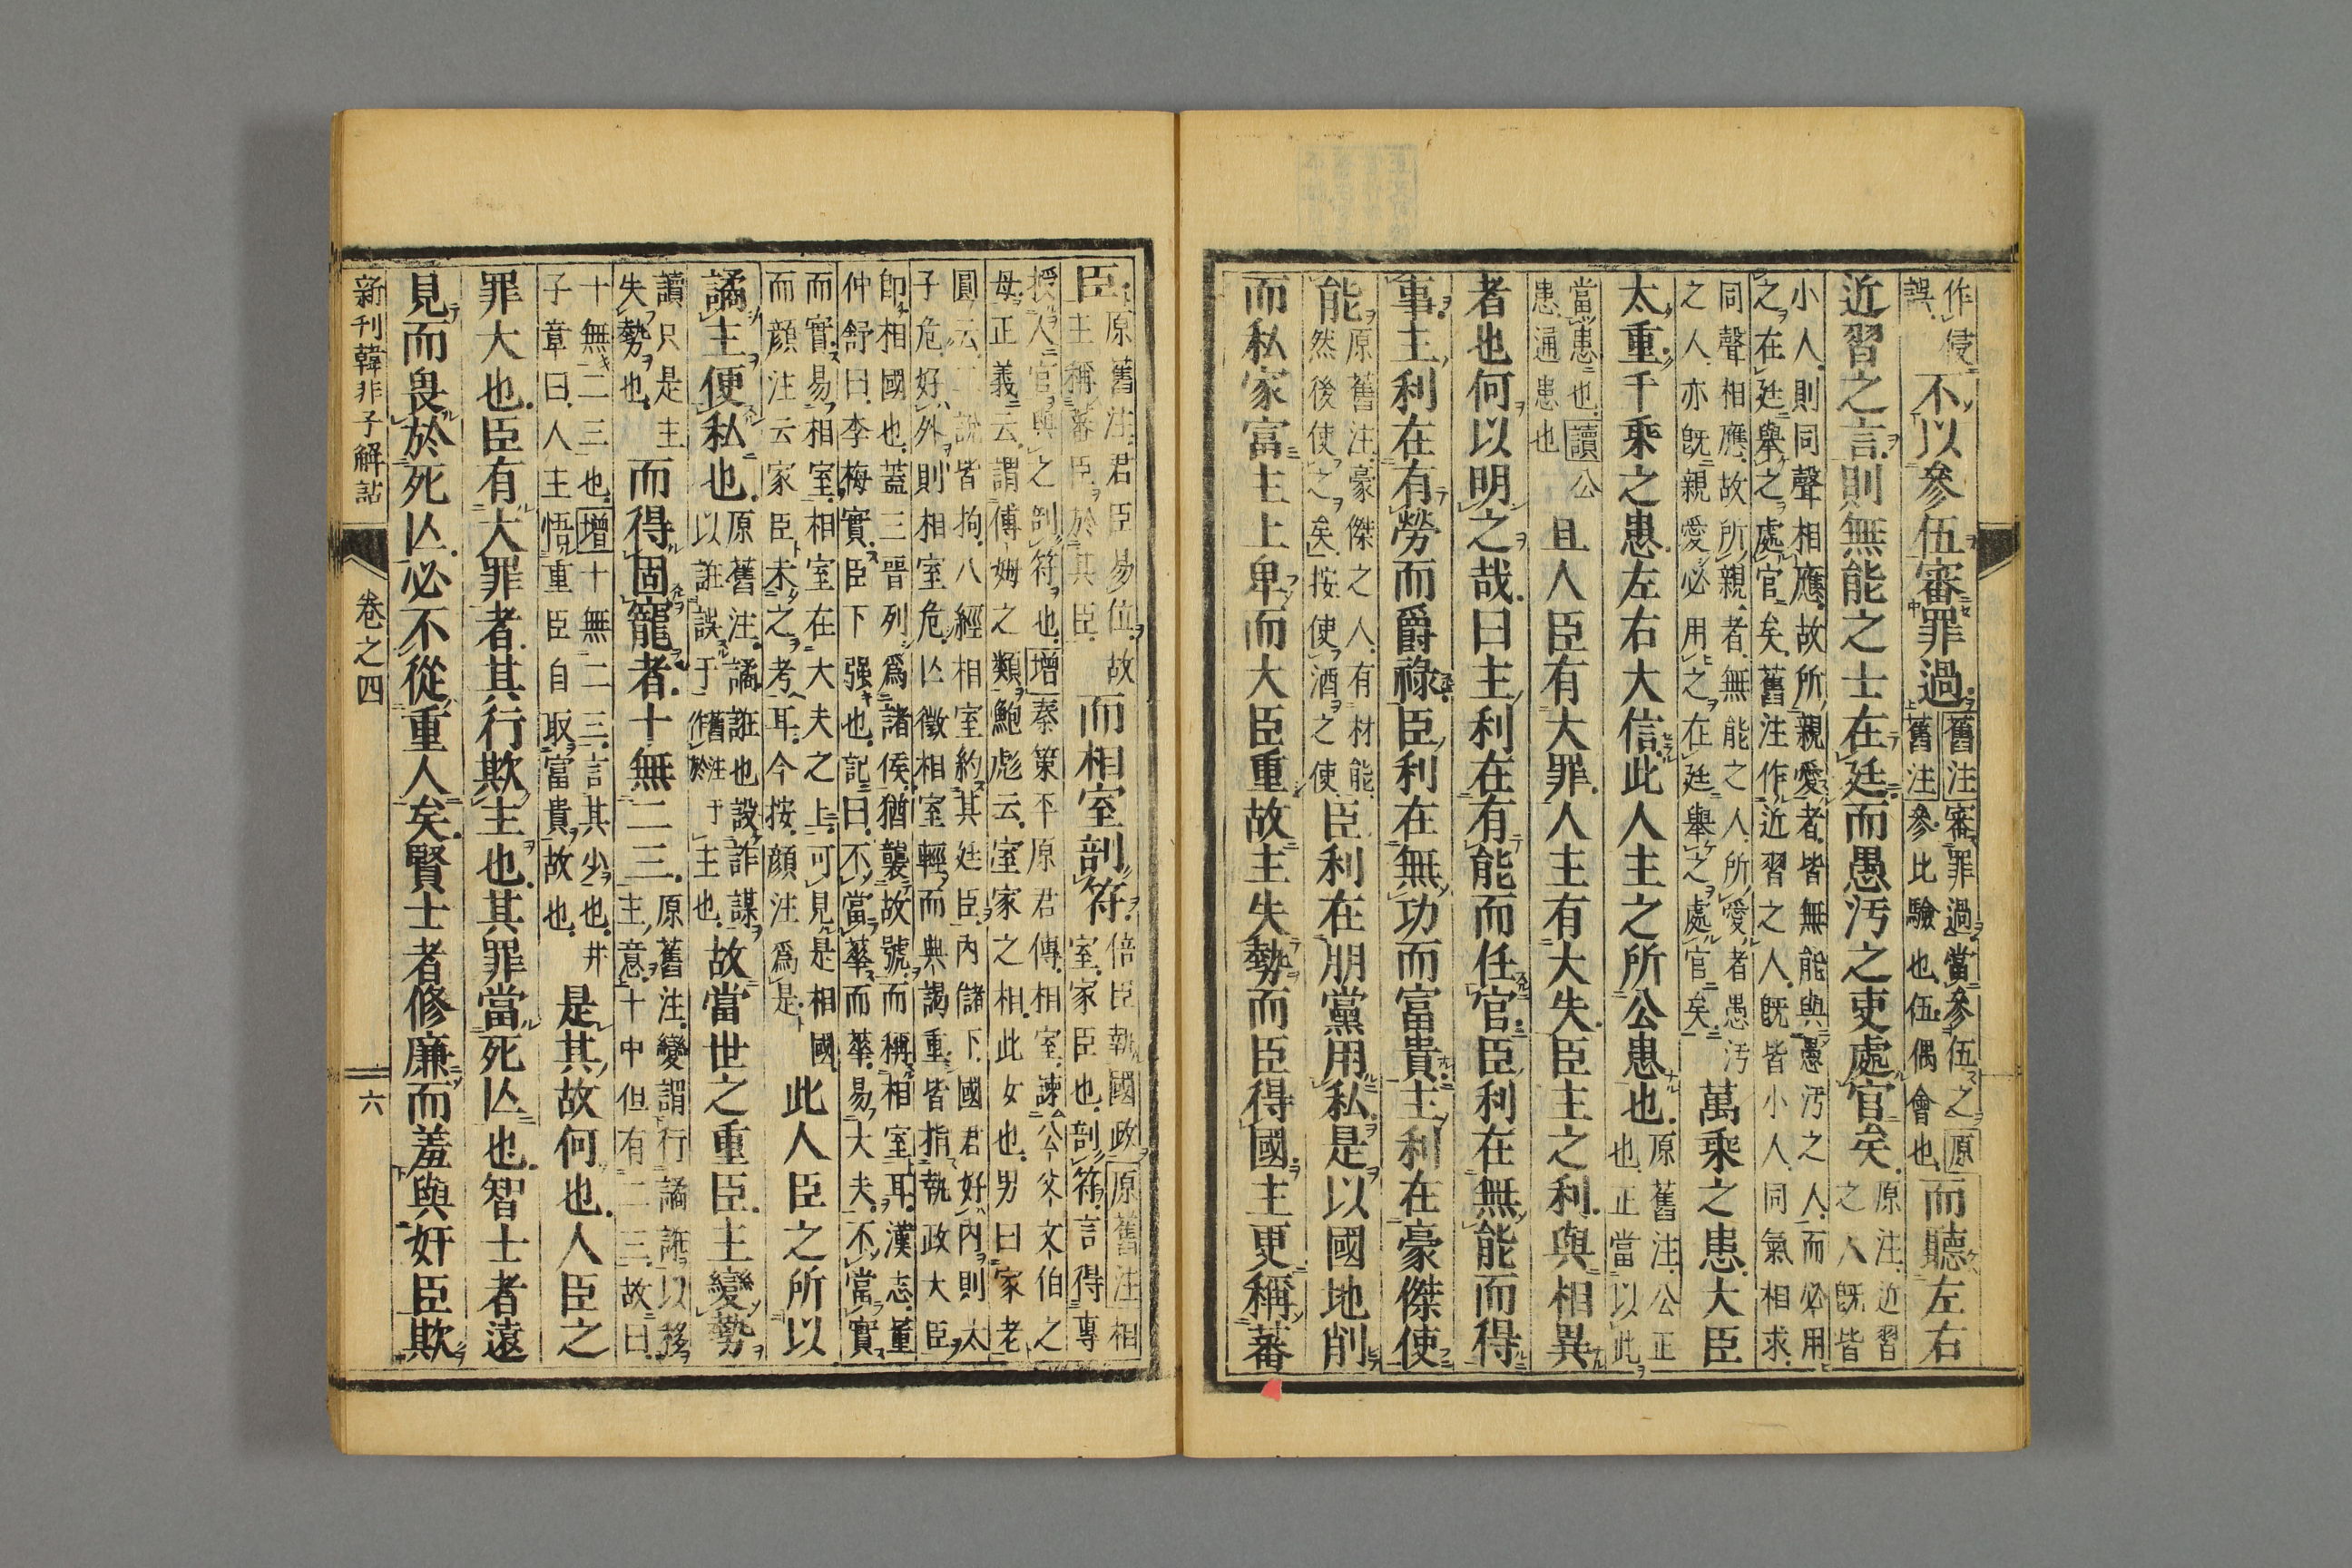 作侵
誤
不以參伍審罪過
舊注審罪過當參伍之原
舊注參比驗也伍偶會也
而聽左右
近習之言則無能之士在廷而愚汚之吏處官矣
原注近習
之人既皆
小人則同聲相應故所親愛者皆無能與愚汚之人而必用
之在廷舉之處官矣舊注作近習之人既皆小人同氣相求
同聲相應故所親者無能之人所愛者愚汚
之人亦既親愛必用之在廷舉之處官矣
萬乘之患大臣
太重千乘之患左右大信此人主之所公患也
原舊注公正
也正當以此
當患也讀公
患通患也
且人臣有大罪人主有大失臣主之利與相異
者也何以明之哉曰主利在有能而任官臣利在無能而得
事主利在有勞而爵祿臣利在無功而富貴主利在豪傑使
能
原舊注豪傑之人有材能
然後使之矣按使酒之使
臣利在朋黨用私是以國地削
而私家富主上卑而大臣重故主失勢而臣得國主更稱蕃
臣
原舊注君臣易位故
主稱蕃臣於其臣
而相室剖符
倍臣執國政原舊注相
室家臣也剖符言得專
授人官與之剖符也增秦策平原君傳相室諫公父文伯之
母正義云謂傅姆之類鮑彪云室家之相此女也男曰家老
圓云二說皆拘八經相室約其廷臣內儲下國君好內則太
子危好外則相室危亾徵相室輕而典謁重皆指執政大臣
卽相國也蓋三晉列爲諸侯猶襲故號而稱相室耳漢志董
仲舒曰李梅實臣下强也記曰不當華而華易大夫不當實
而實易相室相室在大夫之上可見是相國
而顔注云家臣未之考耳今按顔注爲是
此人臣之所以
譎主便私也
原舊注譎誑也設詐謀
以誑誤于舊注作於于主也
故當世之重臣主變勢
讀只是主
失勢也
而得固寵者十無二三
原舊注變謂行譎誑以移
主意十中但有二三故曰
十無二三也增十無二三言其少也井
子章曰人主悟重臣自取富貴故也
是其故何也人臣之
罪大也臣有大罪者其行欺主也其罪當死亾也智士者遠
見而畏於死亾必不從重人矣賢士者修廉而羞與奸臣欺
新刊韓非子解詁 卷之四 六